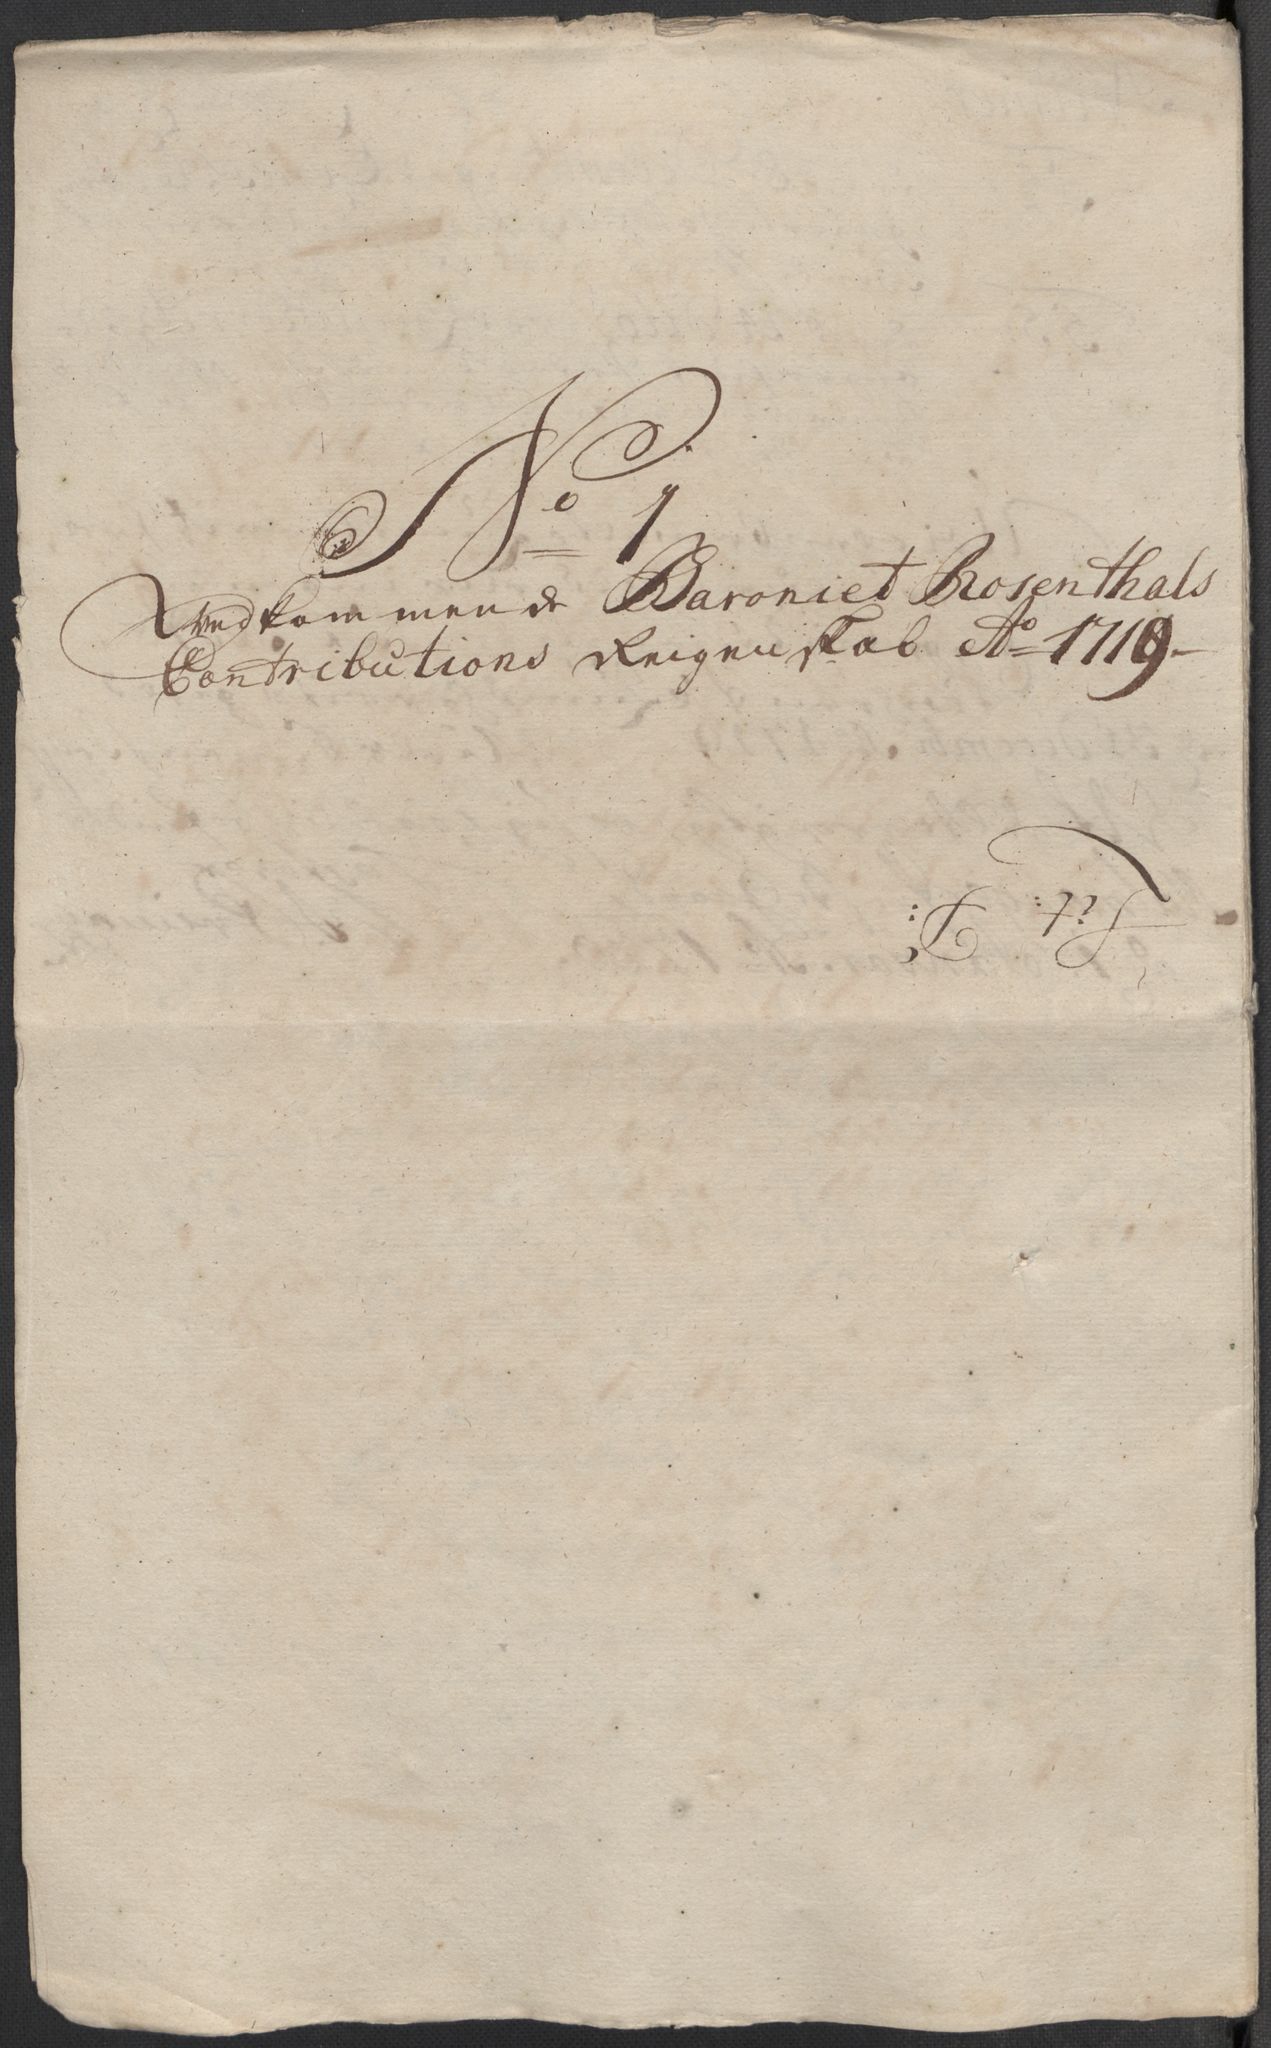 No 1
Vedkommende Baroniet Rosenthals
Contributions Reigenskab Ao 1719
Lit: D: